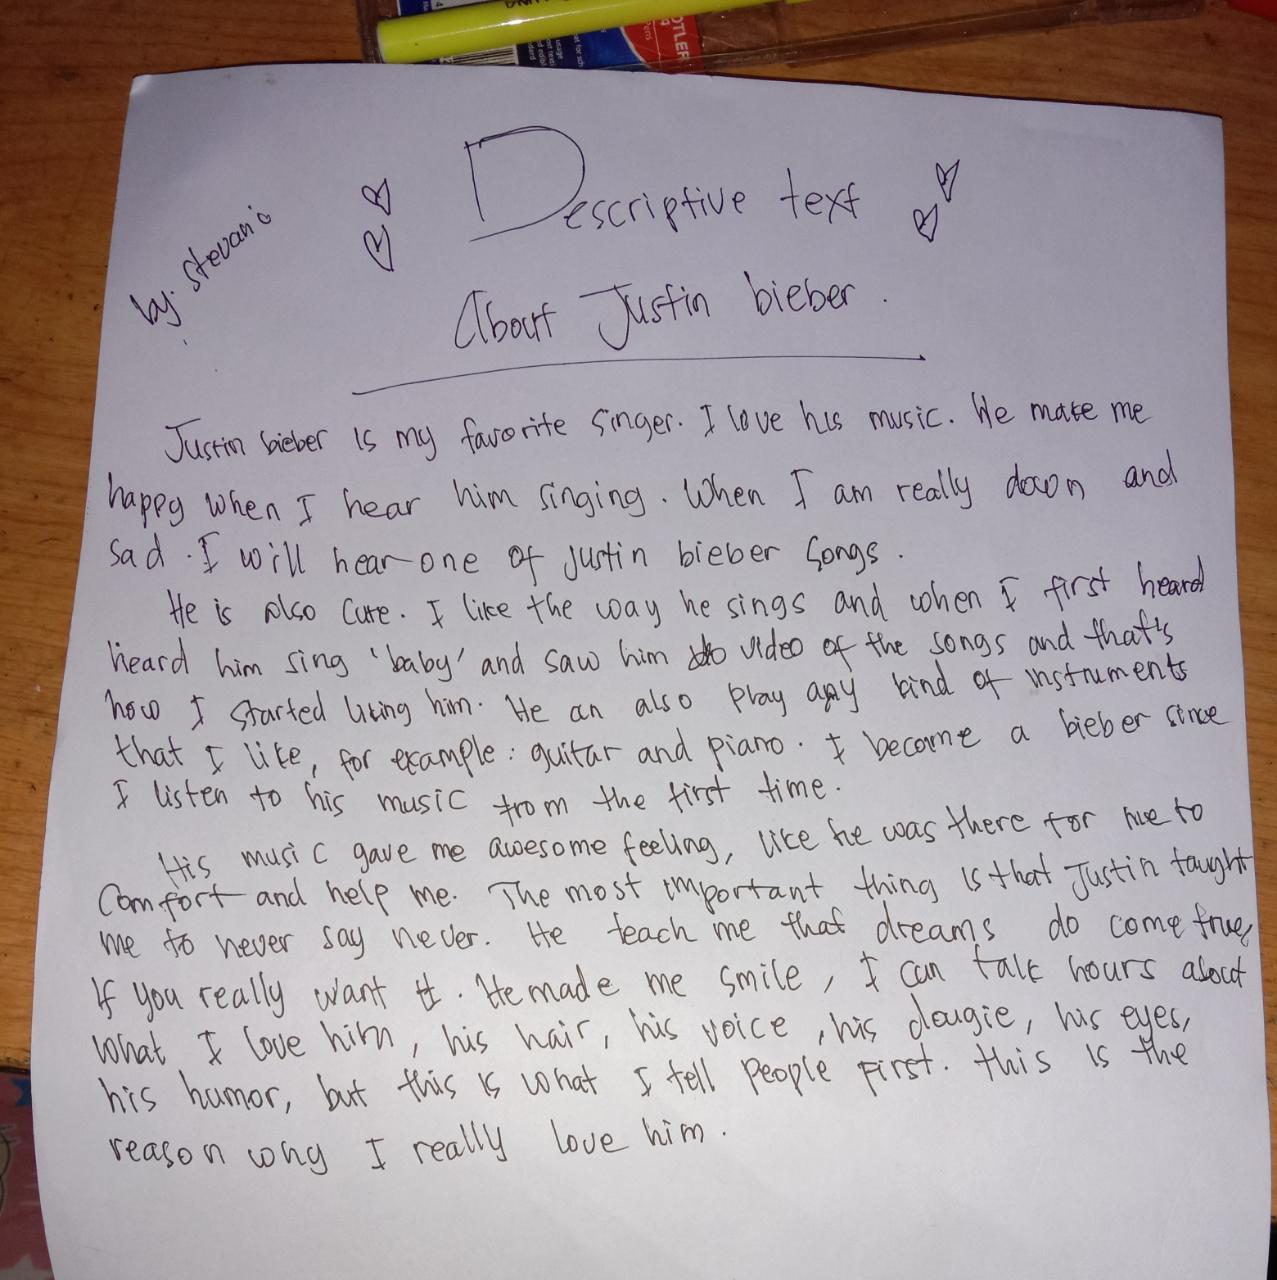 OTLER
by: stevani
Descriptive text
About Justin bieber.
Justin bieber is my favorite singer. I love his music. He make me
happy when I hear him singing. When I am really down and
sad. I will hear one of justin bieber songs.
He is also cute. I like the way he sings and when I first heard
heard him sing 'baby' and saw him video of the songs and that's
how I started liking him. He an also play any kind of instruments
that I like, for example: guitar and piano. I become a bieber since
I listen to his music from the first time.
His music gave me awesome feeling, like he was there for me to
comfort and help me. The most important thing is that Justin taught
me to never say never. He teach me that dreams do come true,
If you really want it. He made me smile, I can talk hours about
what I love him, his hair, his voice, his dougie, his eyes,
his humor, but this is what I tell people first. this is the
reason why I really love him.